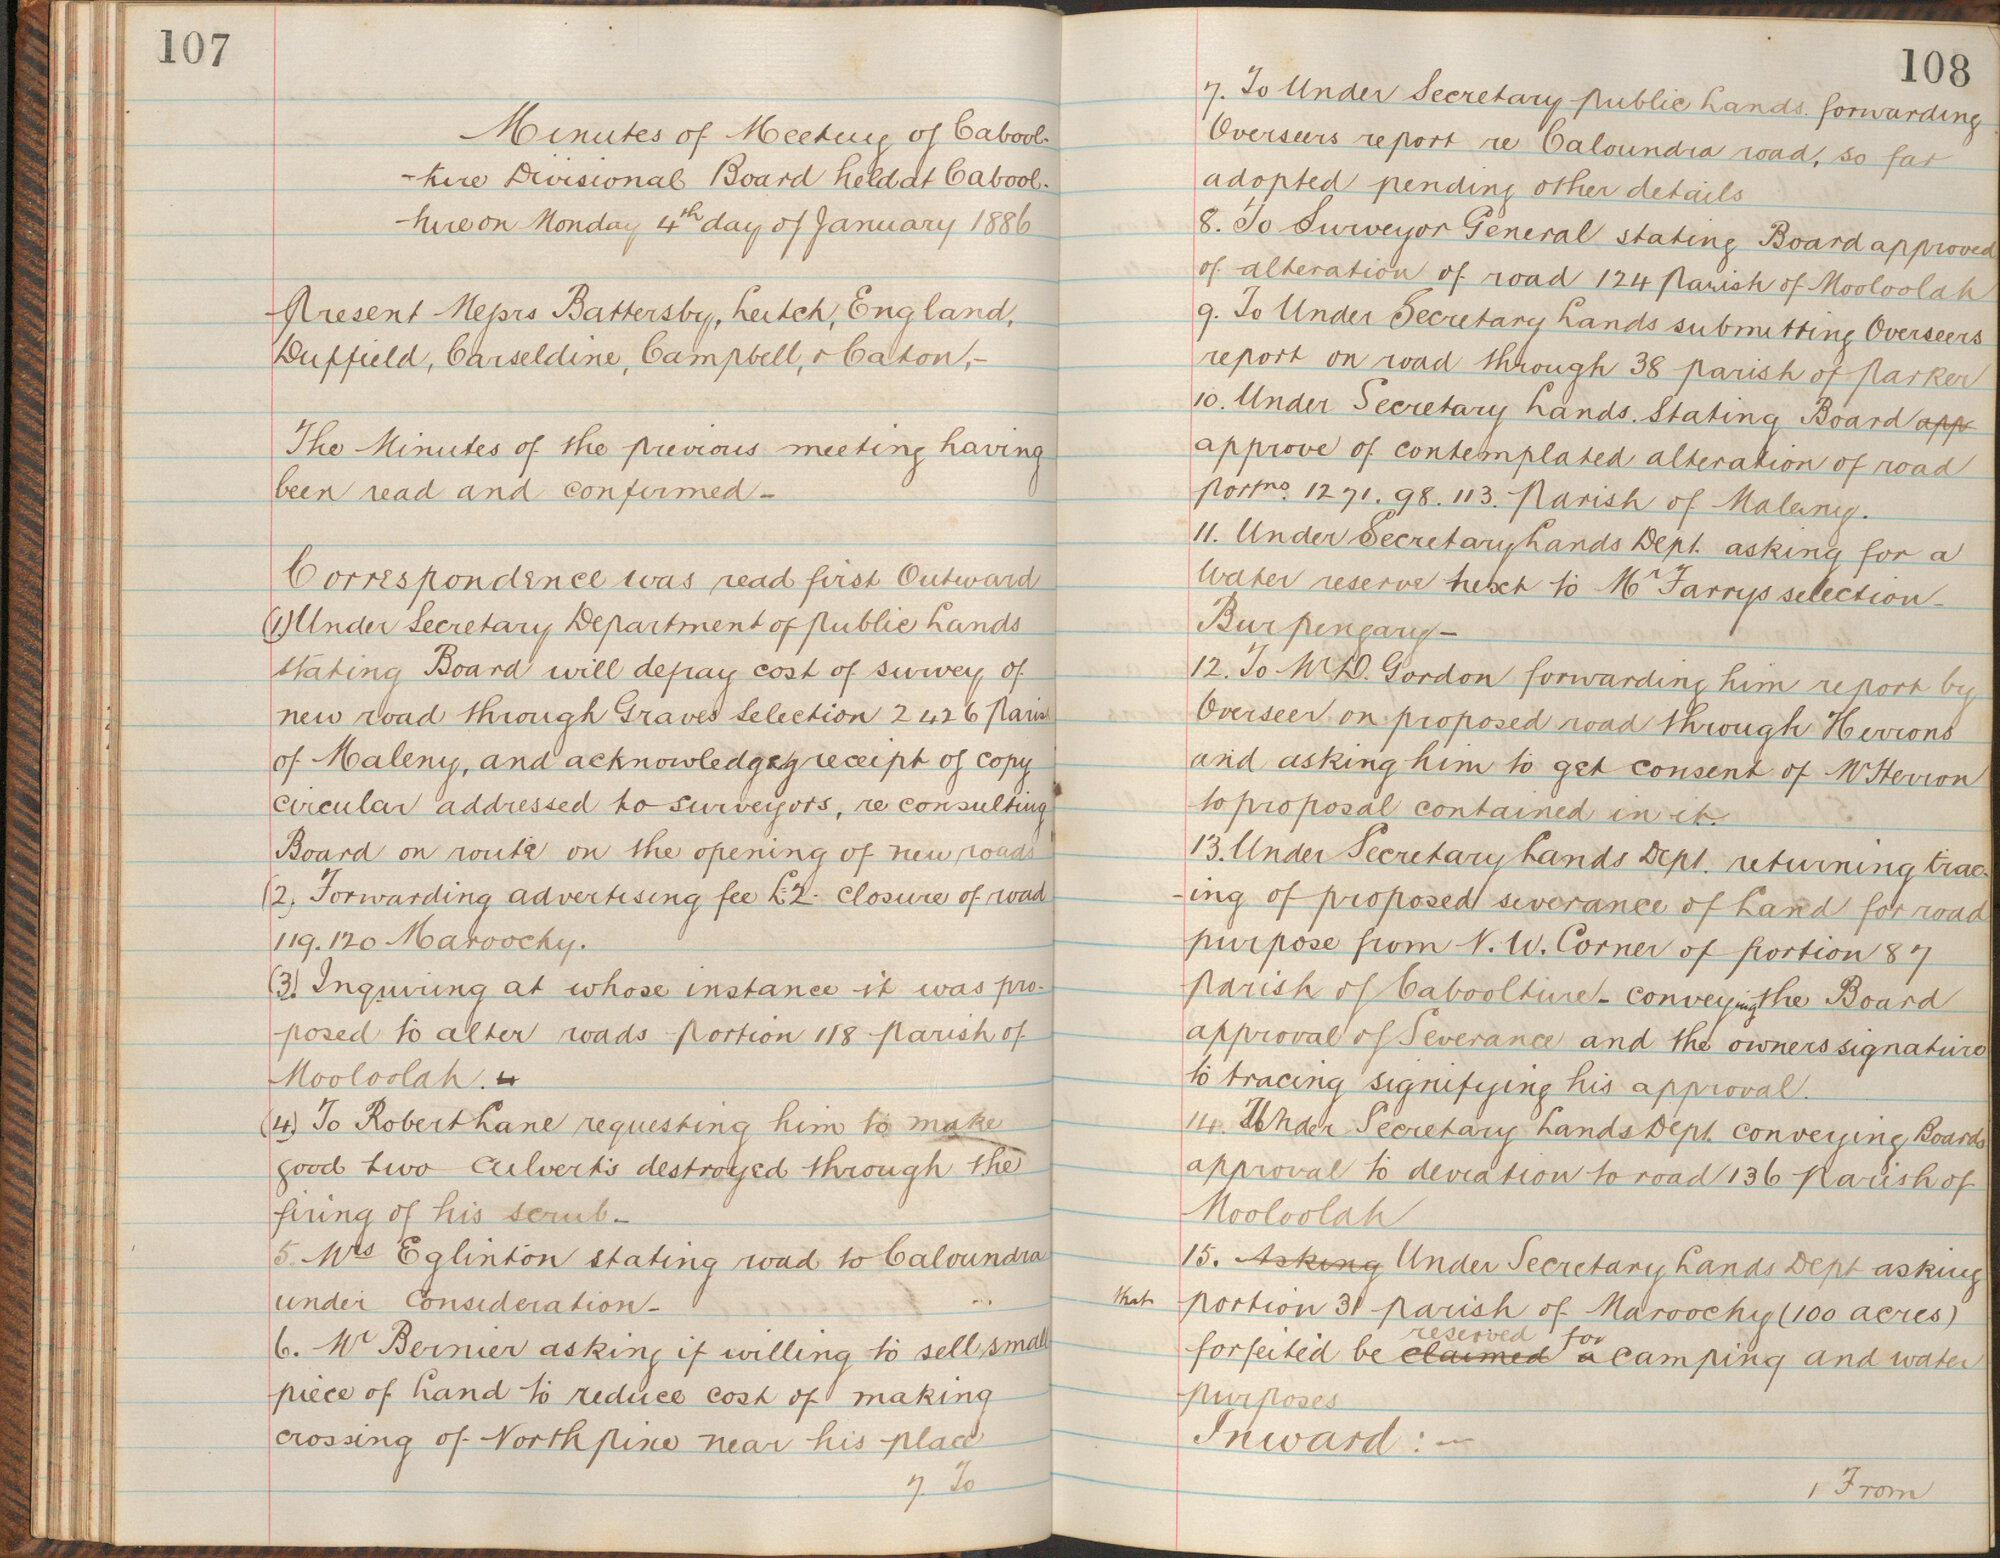 107
Minutes of Meeting of Cabool-
-ture Divisional Board held at Cabool-
-ture on Monday 4th day of January 1886
Present Messrs Battersby, Leitch, England,
Duffield, Carseldine, Campbell, & Caton,-
The Minutes of the previous meeting having
been read and confirmed-
Correspondence was read first Outward
(1) Under Secretary Department of Public Lands
stating Board will defray cost of survey of
new road through Graves Selection 2426 Parish
of Maleny, and acknowledgeg receipt of copy
circular addressed to surveyors, re consulting
Board on route on the opening of new roads
(2) Forwarding advertising fee £2. closure of road
119.120 Maroochy.
(3). Inquiring at whose instance it was pro-
posed to alter roads portion 118 Parish of
Mooloolah. 4
(4) To Robert Lane requesting him to make
good two culverts destroyed through the
firing of his scrub-
5. Mrs Eglinton stating road to Caloundra
under consideration-
6. Mr Bernier asking if willing to sell small
piece of Land to reduce cost of making
crossing of North pine near his place
7. To
108
7. To Under Secretary Public Lands. forwarding
Overseers report re Caloundra road, so far
adopted pending other details
8. To Surveyor General stating Board approved
of alteration of road 124 Parish of Mooloolah
9. To Under Secretary Lands submitting Overseers
report on road through 38 parish of Parker
10. Under Secretary Lands. Stating Board app
approve of contemplated alteration of road
Portno. 1271. 98. 113. Parish of Maleny.
11. Under Secretary Lands Dept. asking for a
Water reserve next to Mr Farrys selection-
Burpengary-
12. To Mr D. Gordon forwarding him report by
Overseer on proposed road through Herrons
and asking him to get consent of Mr Herron
to proposal contained in it.
13. Under Secretary Lands Dept. returning trac-
-ing of proposed severance of Land for road
purpose from N.W. Corner of portion 87
Parish of Caboolture- conveying the Board
approval of Severance and the owners signature
to tracing signifying his approval.
14. Under Secretary Lands Dept. conveying Boards
approval to deviation to road 136 Parish of
Mooloolah
15. Asking Under Secretary Lands Dept asking
that portion 31 parish of Maroochy (100 acres)
forfeited be claimed reserved a for camping and water
purposes
Inward:-
1 From